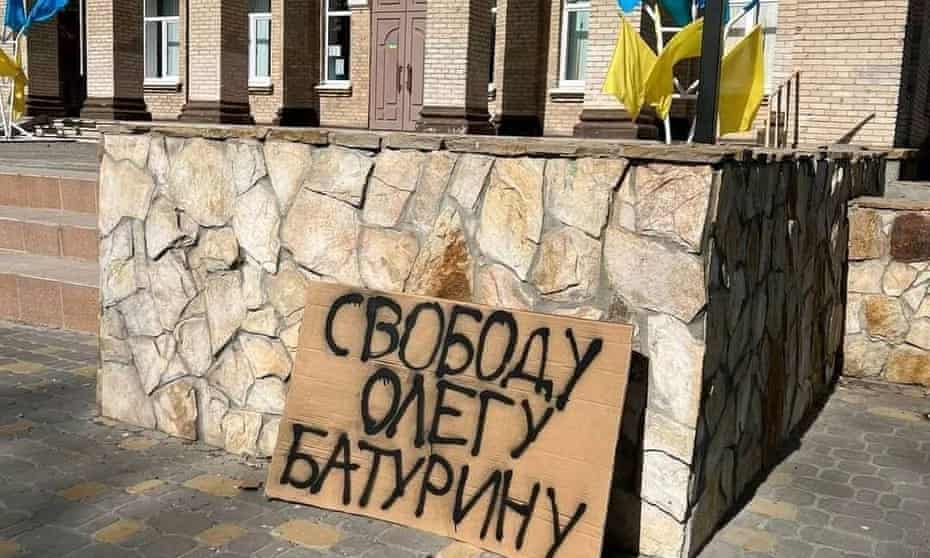 СВОБОДУ
ОЛЕГУ
БАТУРИНУ